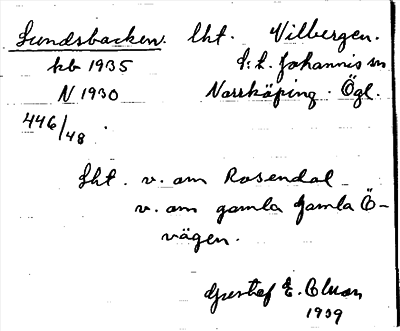 Lundsbacken. lht. Vilbergen.
kb 1935 S:t Johannis sn
N 1930 Norrköping. Ögl.
446/48.
Lht. v. om Rosendal
v. om gamla gamla Ö-
vägen.
Gustaf E. Olson
1939